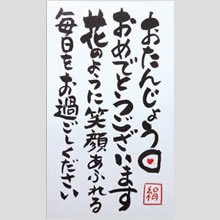 おたんじょう日
おめでとうございます
花のように笑顔あふれる
毎日をお過ごしください
絹